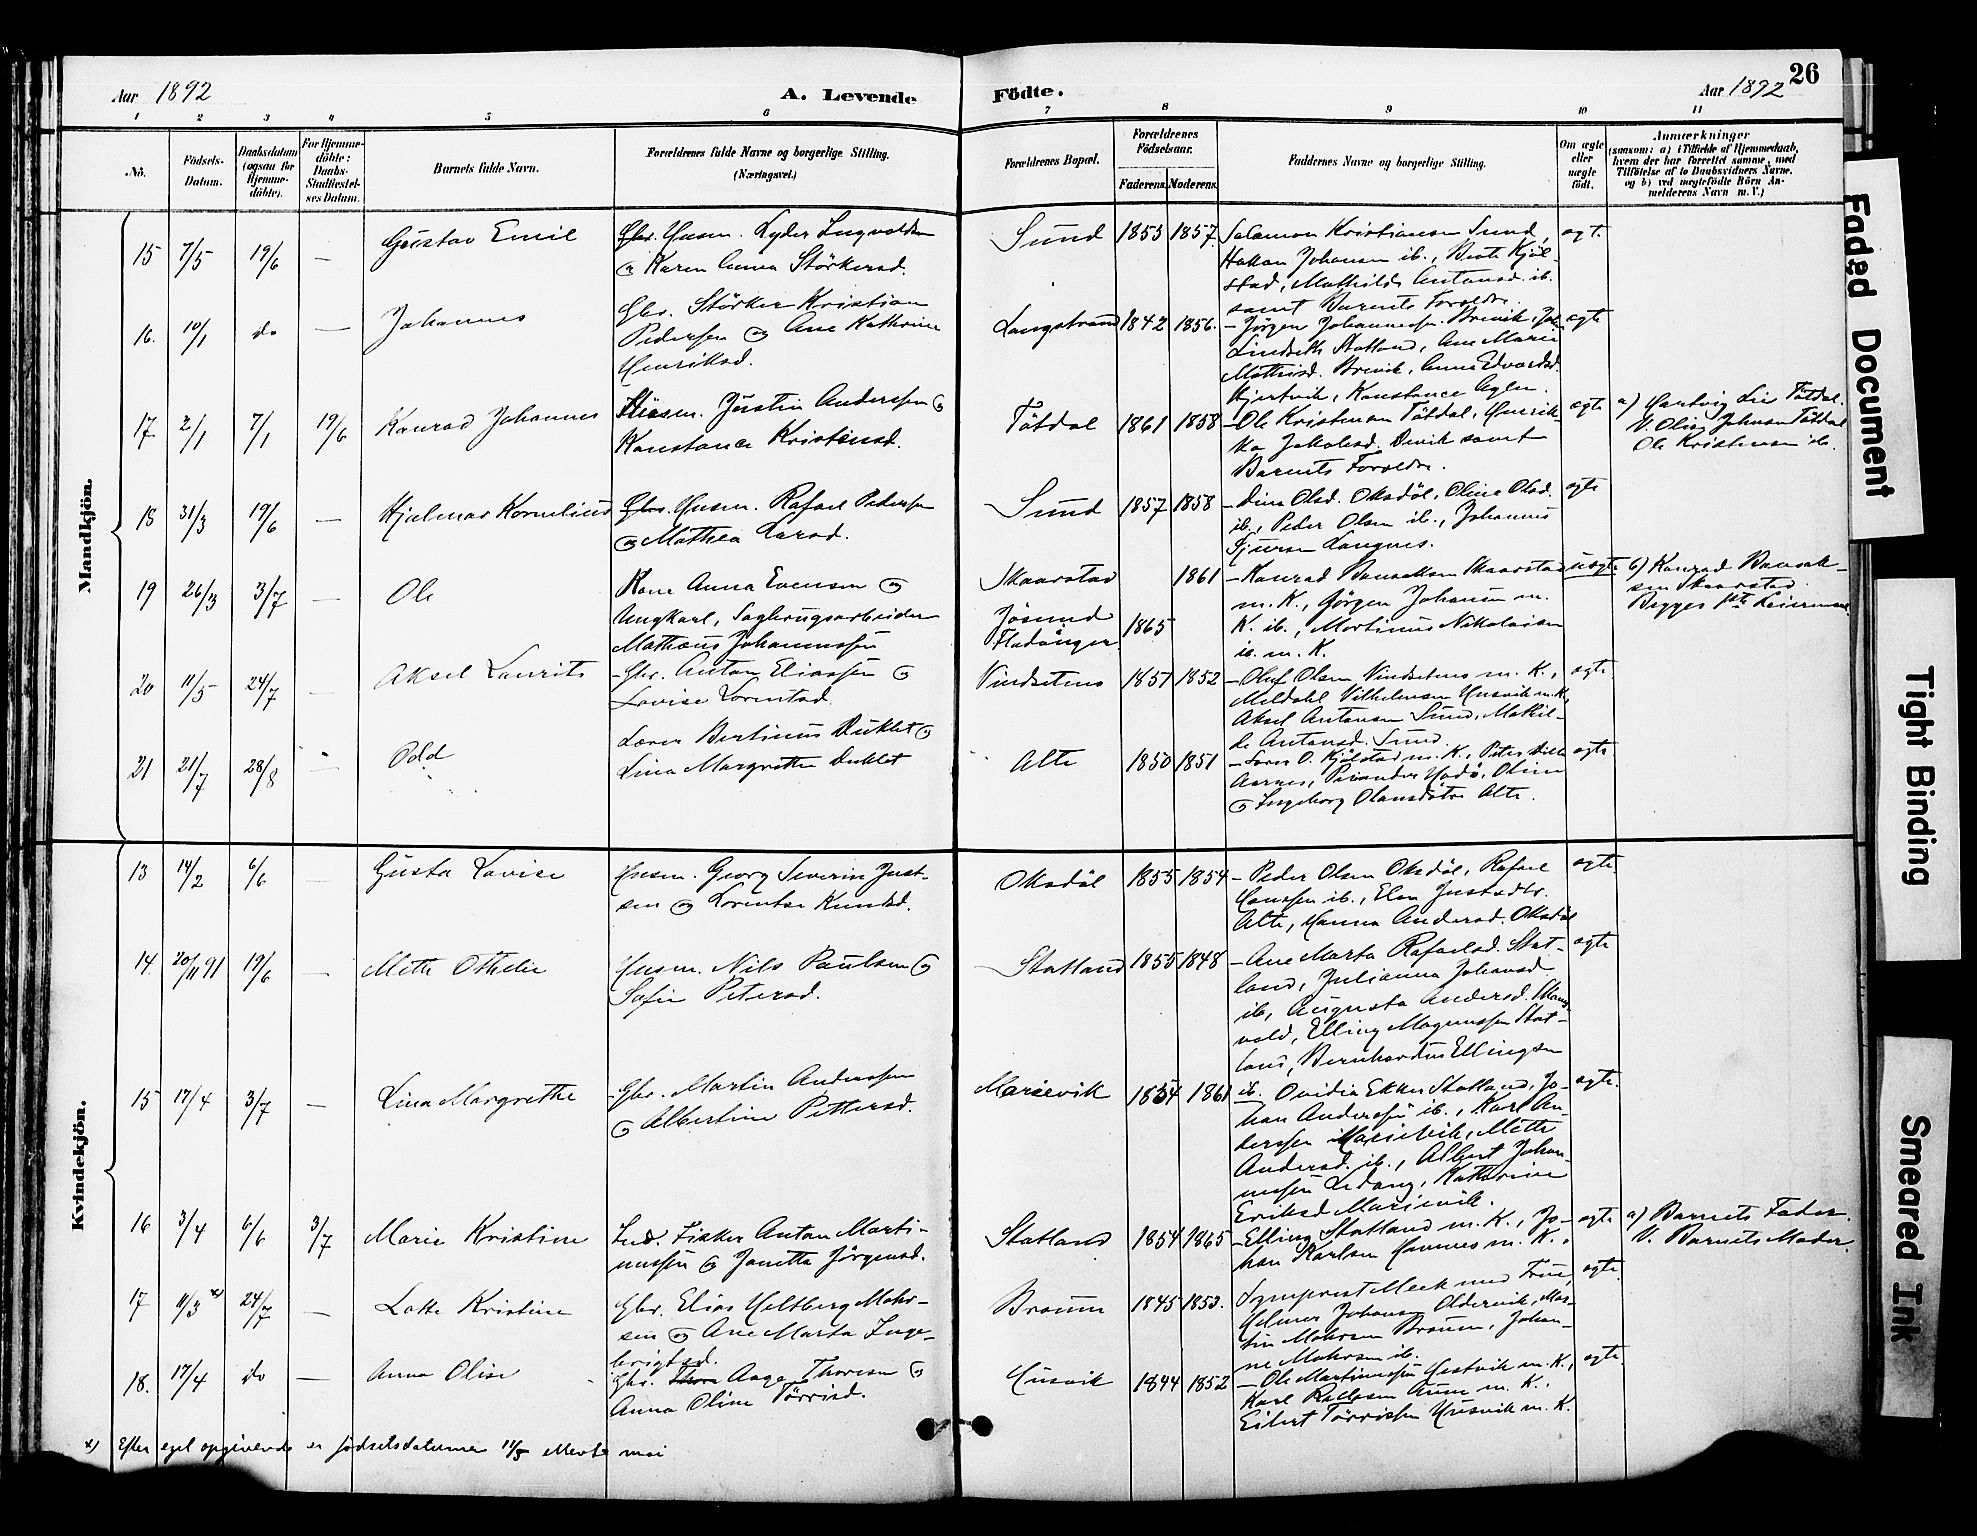 Aar 1892 A. Levende
Födte. Aar 1892 26
1 2 3 4 5 6
7 8 9 10 11
No.
Födsels-
Datum.
Daabsdatum
(ogsaa for
Hjemme-
döbte).
For Hjemme-
döbte:
Daabs-
Stadfæstel-
ses Datum.
Barnets fulde Navn.
Forældrenes fulde Navne og borgerlige Stilling.
(Næringsvei.)
Forældrenes Bopæl.
Forældrenes
Födselsaar.
Faderens. Moderens.
Faddernes Navne og borgerlige Stilling.
Om ægte
eller
uægte
födt.
Anmærkninger
(saasom: a) i Tilfælde af Hjemmedaab,
hvem der har forrettet samme, med
Tilföielse af to Daabsvidners Navne,
og b) ved uægtefödte Börn An-
melderens Navn m. V.)
Mandkjön.
15 7/5 19/6 — Gustav Emil
Husm. Lyder Ingvaldsen
og Karen Anna Störkersd.
Sund 1853 1857
Salamon Kristiansen Sund,
Hakon Johansen ib., Berte Kjöl-
stad, Mathilde Antonsd. ib.
samt Barnets Forældre.
ægt.
16. 10/1 do — Johannes
Gbr. Störker Kristian
Pedersen og Ane Kathrine
Henriksd.
Langstrand 1842 1856.
— Jörgen Johannessen Brevik, Joh.
Lindseth Statland, Ane Marie
Mathisd. Brevik, Anna Edvardsd.
Hjertvik, Konstance Aglen.
ægte
17 2/1 7/1 19/6 Konrad Johannes
Husm. Justin Anderssen og
Konstance Kristensd.
Tötdal 1861 1858
— Ole Kristensen Tötdal, Henrik-
ka Jakobsd. Devik samt
Barnets Forældre.
ægte
a) Hartvig Lie Tötdal.
V. Olise Johnsen Tötdal
Ole Kristensen ib.
18 31/3 19/6 — Hjalmar Kornelius
Husm. Rafael Pedersen
og Mathea Larsd.
Sund 1857 1858
— Dina Olsd. Oksdöl, Oline Olsd.
ib., Peder Olsen ib., Johannes
Sjursen Langnes.
ægte
19 26/3 3/7 — Ole
Kone Anna Evensen og
Ungkarl, Sagbrugsarbeider
Mathæus Johannessen
Skaarstad 1861
Jösund
Fladanger 1865
— Konrad Skaarstad
m. K., Jörgen Johansen m.
K. ib., Martinus Nikolaisen
ib. m. K.
uægte
b) Konrad
sen Skaarstad
Begges 1ste Leiermaal
20 11/5 24/7 — Aksel Laurits
— Gbr. Anton Eliassen og
Lovise Lorentsd.
Vindsetmo 1851 1852
— Oluf Olsen Vindsetmo m. K.,
Meldahl Vilhelmsen Husvik m. K,
Aksel Antonsen Sund, Mathil-
de Antonsd. Sund
ægte
21 21/7 28/8 — Odd
Lærer Bertinus Duklet og
Lina Margrethe Duklet
Alte 1850 1851
— Sören O. Kjölstad m. K., Peter
Aarnes, Hadö, Oline
og Ingeborg Olausdötre Alte.
ægte
Kvindekjön.
13 14/2 6/6 — Gusta Lovise
Husm. Georg Severin Just-
sen og Lorentse Knudsd.
Oksdöl 1855 1854
— Peder Olsen Oksdöl, Rafael
Hanssen ib., Elen Justsdtr.
Alte, Hanna Andersd. Oksdöl
ægte
14. 20/11 91 19/6 — Mette Othelie
Husm. Nils Paulsen og
Sofie Petersd.
Statland 1855 1848
— Ane Marta Rafaelsd. Stat-
land, Julianna Johansd.
ib, Augusta Andersd.
vold, Elling Magnussen Stat-
land, Bernhardus Ellingsen
ægte
15 17/4 3/7 — Lina Margrethe
— Gbr. Martin Anderssen
og Albertine Pettersd.
Marsevik 1854 1861
ib. Ovidia Ekker Statland, Jo-
han Anderssen ib., Karl An-
derssen Marsevik, Mette
Andersd. ib., Albert Johan-
nessen Ledang, Katharine
Eriksd. Marsevik.
ægte.
16 3/4 6/6 3/7 Marie Kristine
Ind. Fisker Anton Marti-
nussen og Janetta Jörgensd.
Statland 1854 1865
— Elling Statland m. K., Jo-
han Karlsen Hamnes m. K.
ægte
a) Barnets Fader.
V. Barnets Moder.
17 11/3 x) 24/7 — Lotte Kristine
Gbr. Elias Heltberg Mohr-
sen og Ane Marta Inge-
brigtsd.
Braum 1845 1853.
Sognprest Meek med Frue,
Helmer Johansen Oldervik, Mar-
tin Mohrsen Braum, Johan-
ne Mohrsen ib.
ægte
18. 17/4 do — Anna Olise
Gbr. Aage Thoresen og
Anna Oline Törrisd.
Husvik 1844 1852
— Ole Martinussen Hestvik m. K.,
Karl Aune m. K.,
Eilert Törrissen Husvik m. K.
ægte.
x) Efter eget opgivende er födselsdatumen 11/5 altsaa mai
Faded Document
Tight Binding
Smeared Ink